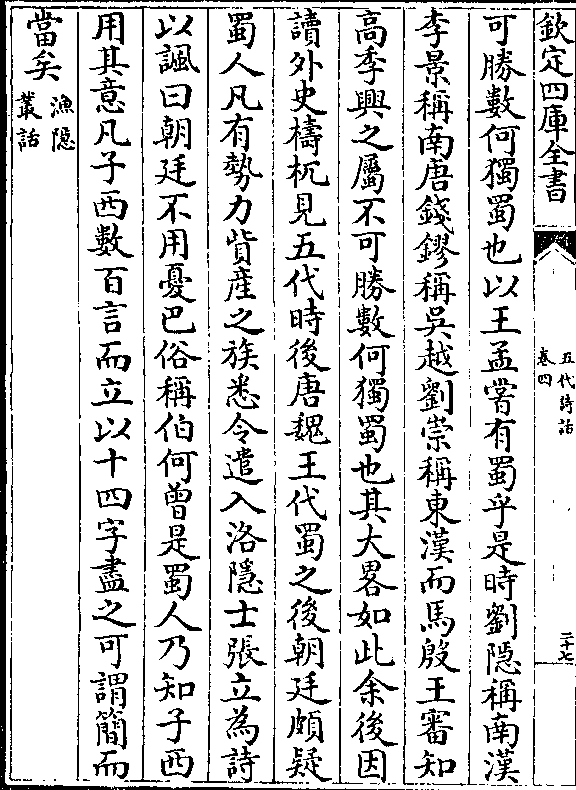 欽定四庫全書
五代詩話
卷四
二十七
可勝數何獨蜀也以王孟嘗有蜀乎是時劉隠稱南漢
李景稱南唐錢鏐稱吳越劉崇稱東漢而馬殷王審知
髙季興之屬不可勝數何獨蜀也其大畧如此余後因
讀外史檮杌見五代時後唐魏王代蜀之後朝廷頗疑
蜀人凡有勢力貲産之族悉令遣入洛隠士張立為詩
以諷曰朝廷不用憂巴俗稱伯何曾是蜀人乃知子西
用其意凡子西數百言而立以十四字盡之可謂簡而
當矣
漁隠
叢話